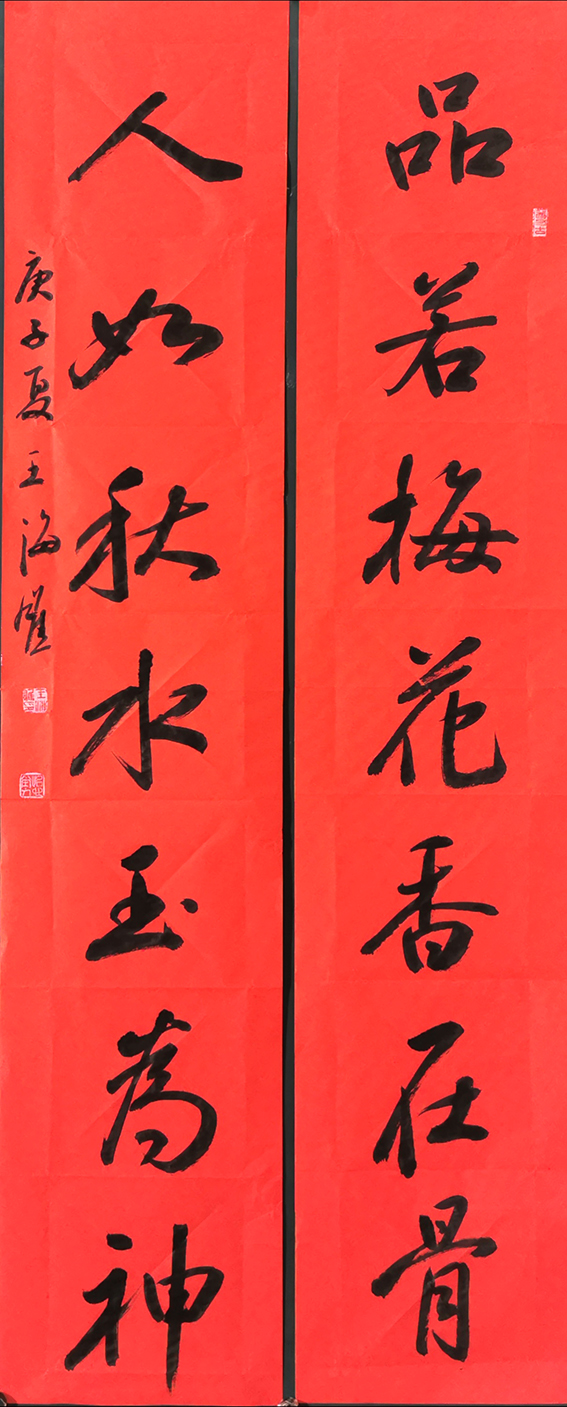 品若梅花香在骨
人如秋水玉為神
庚子夏王海